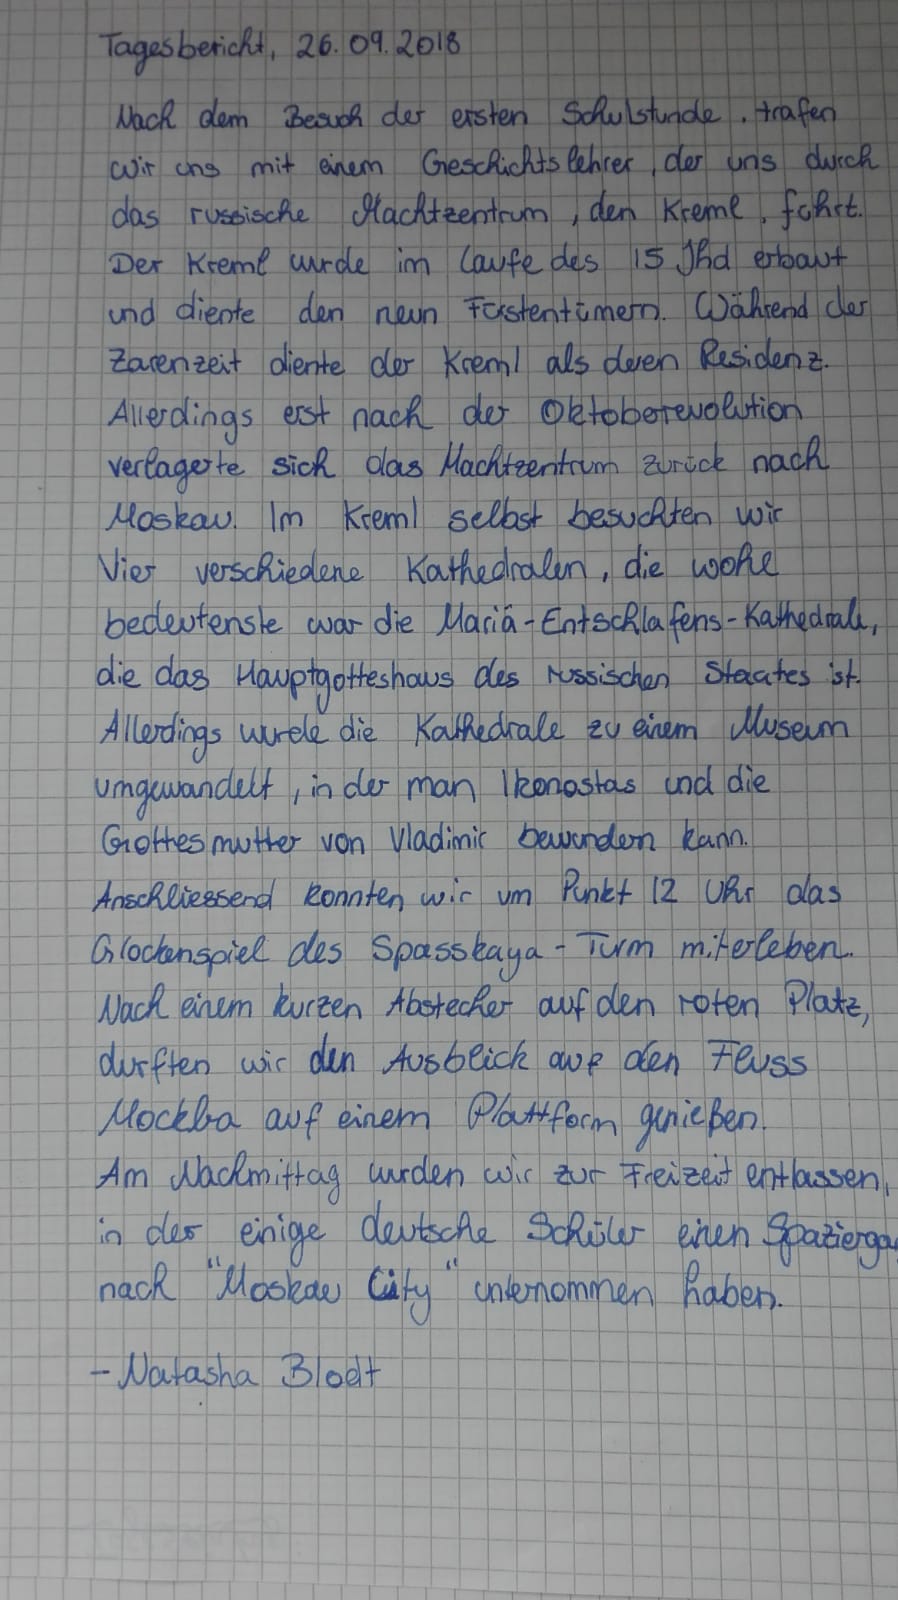 Tagesbericht, 26.09.2018
Nach dem Besuch der ersten Schulstunde, trafen
wir uns mit einem Geschichtslehrer, der uns durch
das russische Machtzentrum, den Kreml, führt.
Der Kreml wurde im Laufe des 15 Jhd erbaut
und diente den neun Fürstentümern. Während der
Zarenzeit diente der Kreml als deren Residenz.
Allerdings erst nach der Oktoberevolution
verlagerte sich das Machtzentrum zurück nach
Moskau. Im Kreml selbst besuchten wir
Vier verschiedene Kathedralen, die wohl
bedeutenste war die Mariä-Entschlafens-Kathedrale,
die das Hauptgotteshaus des russischen Staates ist.
Allerdings wurde die Kathedrale zu einem Museum
umgewandelt, in der man Ikonostas und die
Gottesmutter von Vladimir bewundern kann.
Anschliessend konnten wir um Punkt 12 Uhr das
Glockenspiel des Spasskaya-Turm miterleben.
Nach einem kurzen Abstecher auf den roten Platz,
durften wir den Ausblick auf den Fluss
Mockba auf einem Plattform genießen.
Am Nachmittag wurden wir zur Freizeit entlassen,
in der einige deutsche Schüler einen Spazierga
nach "Moskau City" unternommen haben.
- Natasha Blodt